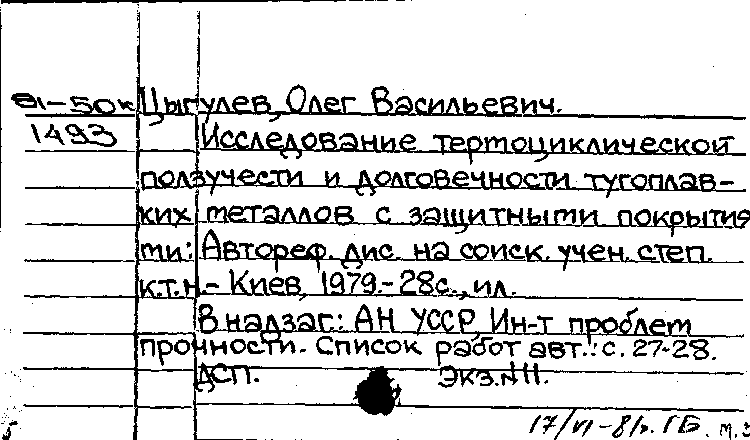 81-50к Цыгулев, Олег Васильевич.
1493 Исследование термоциклической
ползучести и долговечности тугоплав-
ких металлов с защитными покрытия
ми: Автореф. дис. на соиск. учен. степ.
к.т.н.- Киев, 1979.-28с., ил.
В надзаг.: АН УССР, Ин-т проблем
прочности. Список работ авт.: с. 27-28.
ДСП. Экз.№11.
17/VI-81г. ГБ. м.з